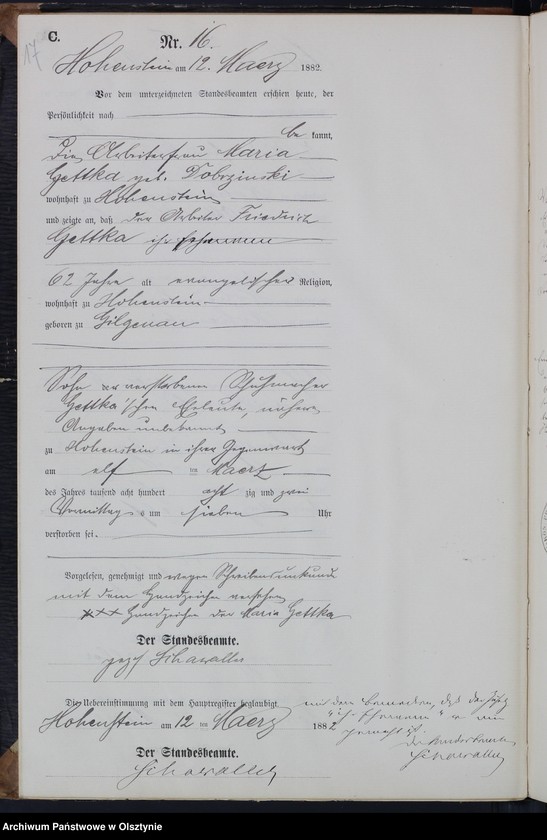 17
C.
Nr. 16.
Hohenstein am 12. Maerz 1882.
Vor dem unterzeichneten Standesbeamten erschien heute, der
Persönlichkeit nach
be kannt,
die Arbeiterfrau Maria
Gettka geb. Dobrzinski
wohnhaft zu Hohenstein
und zeigte an, daß der Arbeiter Friedrich
Gettka ihr Ehemann
62 Jahre alt evangelischer Religion,
wohnhaft zu Hohenstein
geboren zu Gilgenau
Sohn der verstorbenen Schuhmacher
Gettka'schen Eheleute, nähere
Angaben unbekannt
zu Hohenstein in ihrer Gegenwart
am elf ten Maerz
des Jahres tausend acht hundert acht zig und zwei
Vormittag s um sieben Uhr
verstorben sei.
Vorgelesen, genehmigt und wegen Schreibensunkunde
mit dem Handzeichen versehen
xxx Handzeichen der Maria Gettka
Der Standesbeamte.
gez.
Die Uebereinstimmung mit dem Hauptregister beglaubigt
mit dem Bemerken, daß der
"ihr Ehemann"
Hohenstein am 12 ten Maerz 1882
gemacht ist.
Der Standesbeamte
Der Standesbeamte.
Archiwum Państwowe w Olsztynie